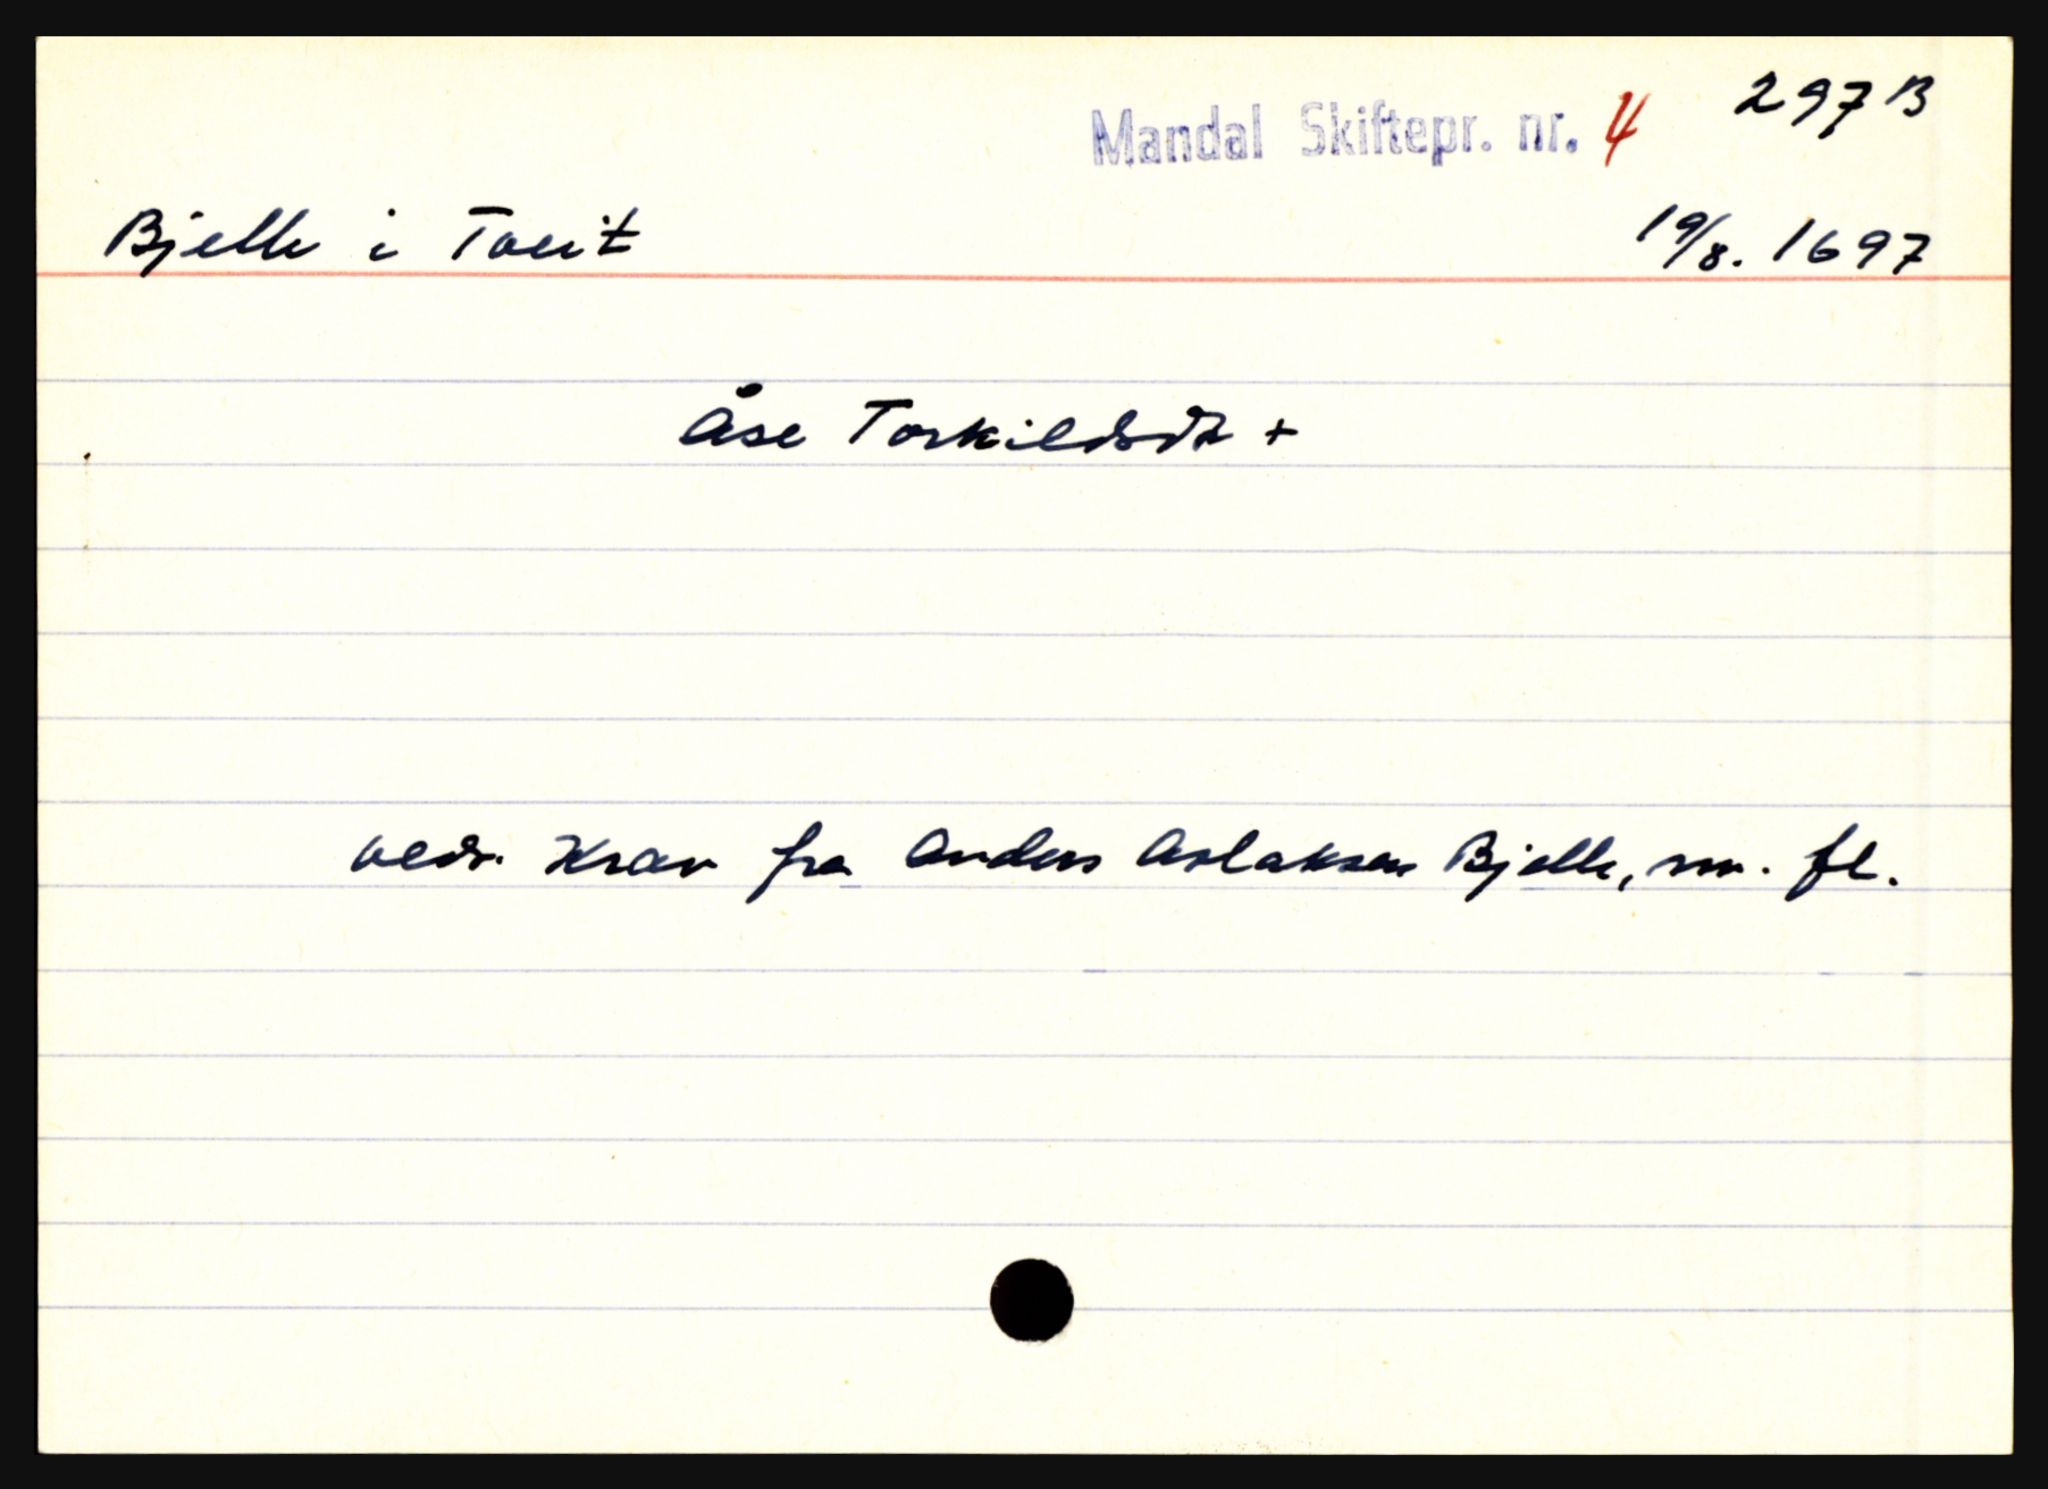 297B
Mandal Skiftepr. nr. 4
Bjelle i Tveit 19/8. 1697
Åse Torkildsdt +
vedr. Krav fra Anders Aslaksen Bjelle, m. fl.